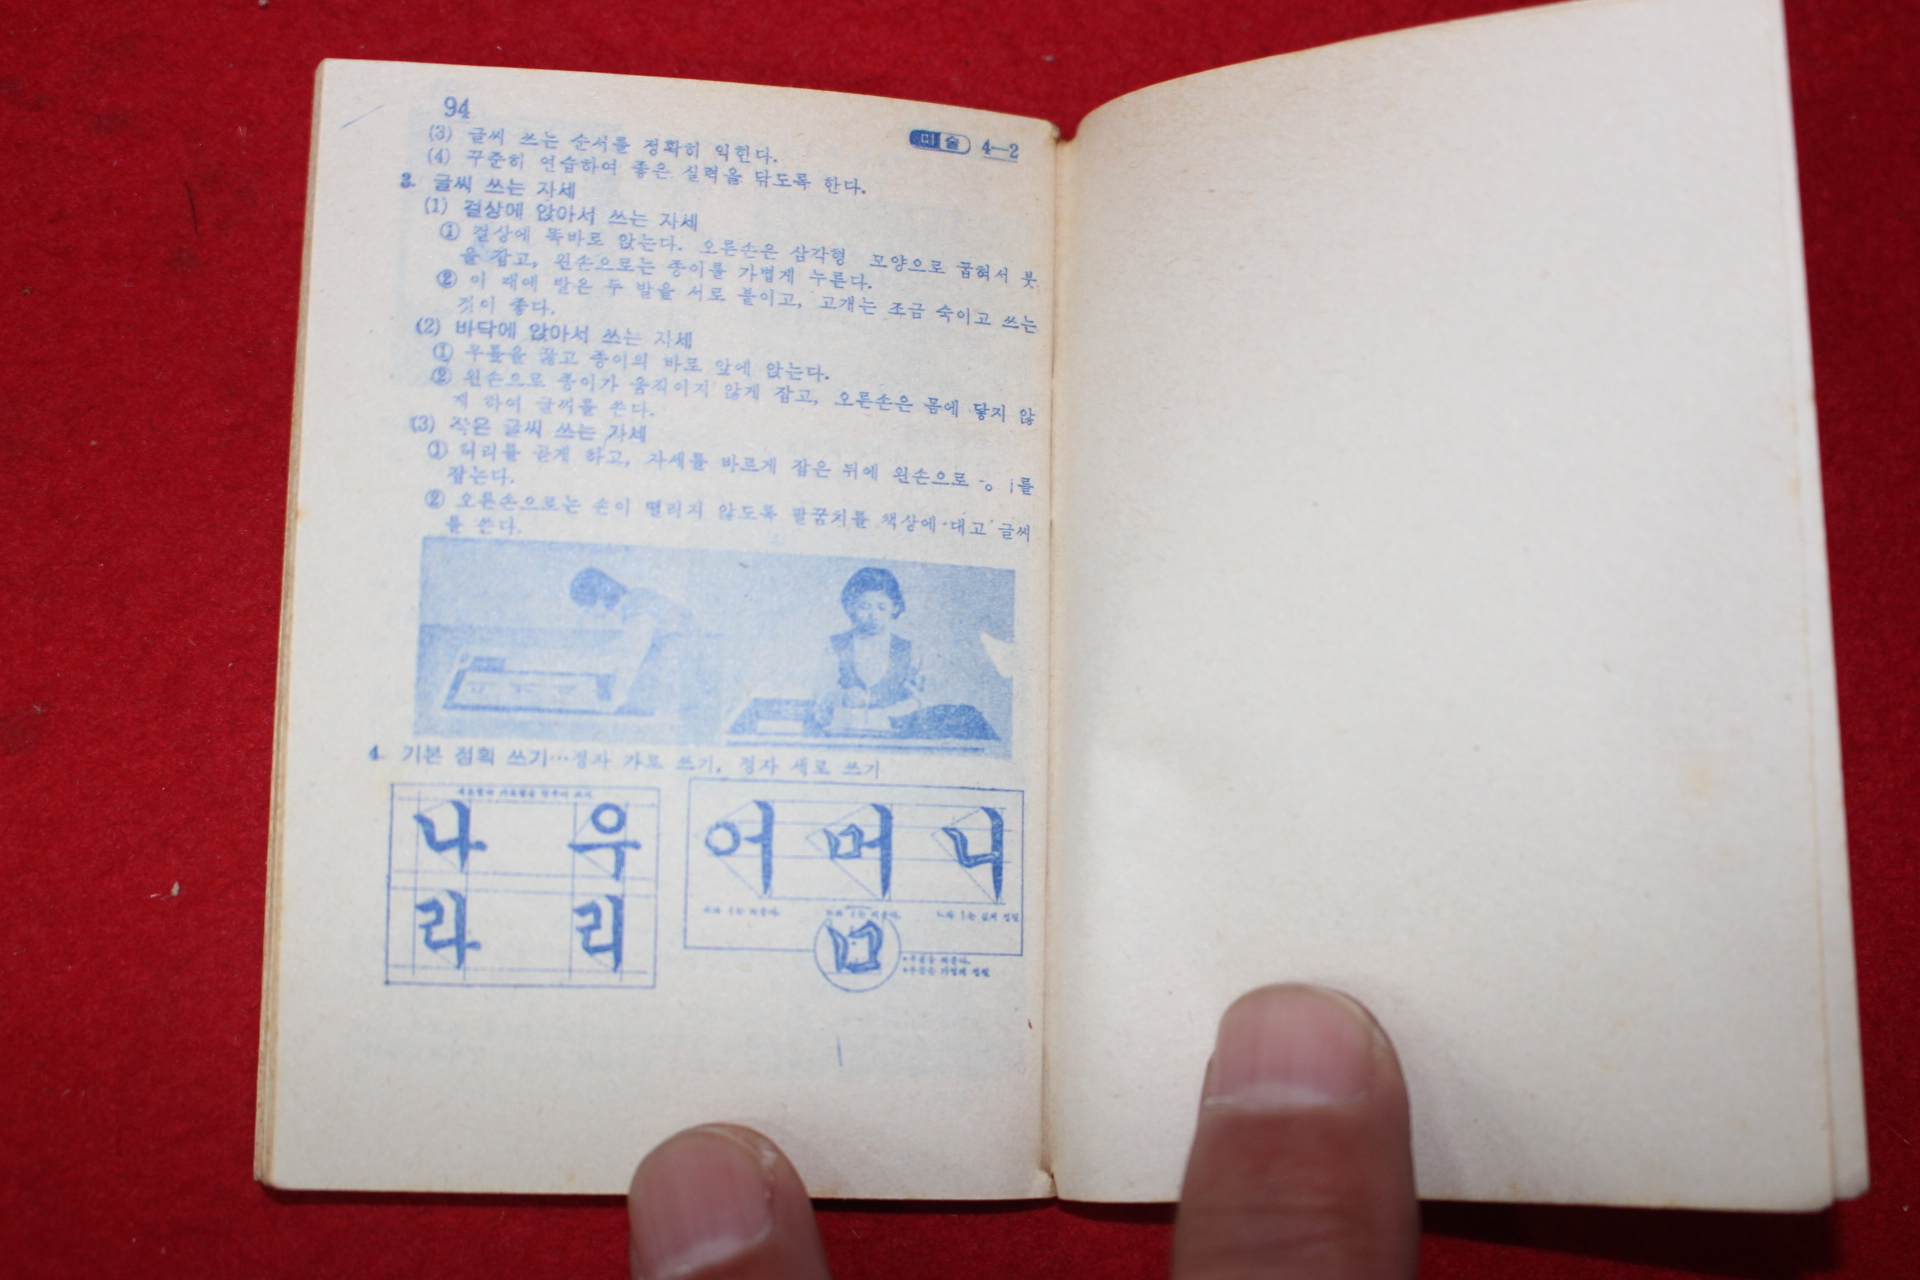 94
미술 4—2
(3) 글씨 쓰는 순서를 정확히 익힌다.
(4) 꾸준히 연습하여 좋은 실력을 닦도록 한다.
3. 글씨 쓰는 자세
(1) 걸상에 앉아서 쓰는 자세
① 걸상에 똑바로 앉는다. 오른손은 삼각형 모양으로 굽혀서 붓
을 잡고, 왼손으로는 종이를 가볍게 누른다.
② 이 때에 발은 두 발을 서로 붙이고, 고개는 조금 숙이고 쓰는
것이 좋다.
(2) 바닥에 앉아서 쓰는 자세
① 무릎을 꿇고 종이의 바로 앞에 앉는다.
② 왼손으로 종이가 움직이지 않게 잡고, 오른손은 몸에 닿지 않
게 하여 글씨를 쓴다.
(3) 작은 글씨 쓰는 자세
① 허리를 곧게 하고, 자세를 바르게 잡은 뒤에 왼손으로
잡는다.
② 오른손으로는 손이 떨리지 않도록 팔꿈치를 책상에 대고 글씨
를 쓴다.
4. 기본 점획 쓰기…정자 가로 쓰기, 정자 세로 쓰기
나 우
라 리
어 머 니
ㅁ